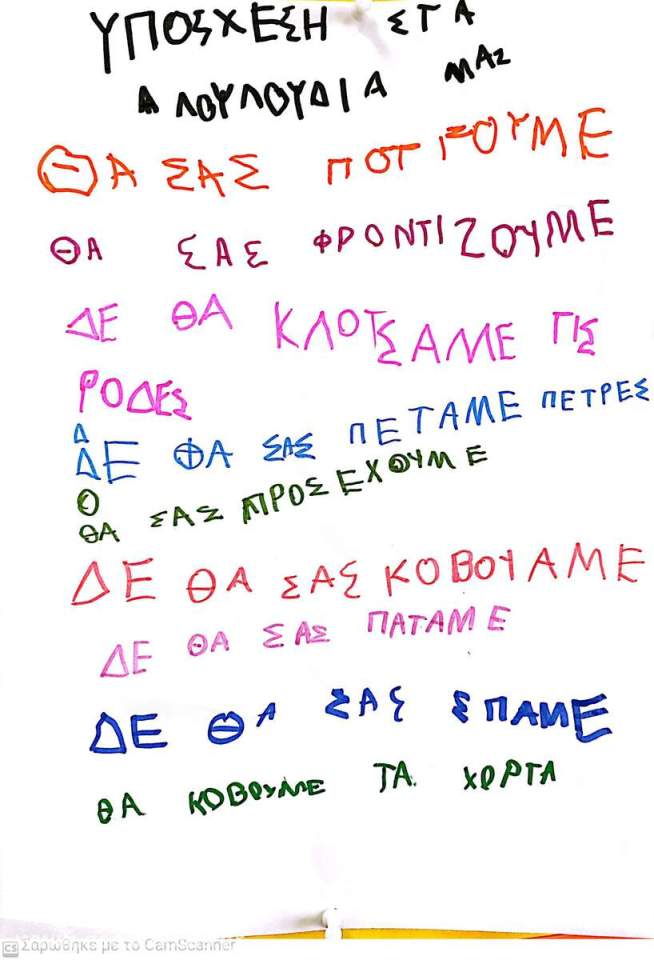 ΥΠΟΣΧΕΣΗ ΣΤΑ
ΛΟΥΛΟΥΔΙΑ ΜΑΣ
ΘΑ ΣΑΣ ΠΟΤΙΖΟΥΜΕ
ΘΑ ΣΑΣ ΦΡΟΝΤΙΖΟΥΜΕ
ΔΕ ΘΑ ΚΛΟΤΣΑΜΕ ΤΙΣ
ΡΟΔΕΣ
Δ
ΔΕ ΘΑ ΣΑΣ ΠΕΤΑΜΕ ΠΕΤΡΕΣ
Θ
ΘΑ ΣΑΣ ΠΡΟΣΕΧΟΥΜΕ
ΔΕ ΘΑ ΣΑΣ ΚΟΒΟΥΑΜΕ
ΔΕ ΘΑ ΣΑΣ ΠΑΤΑΜΕ
ΔΕ ΘΑ ΣΑΣ ΣΠΑΜΕ
ΘΑ ΚΟΒΟΥΜΕ ΤΑ ΧΟΡΤΑ
CS Σαρώθηκε με το CamScanner